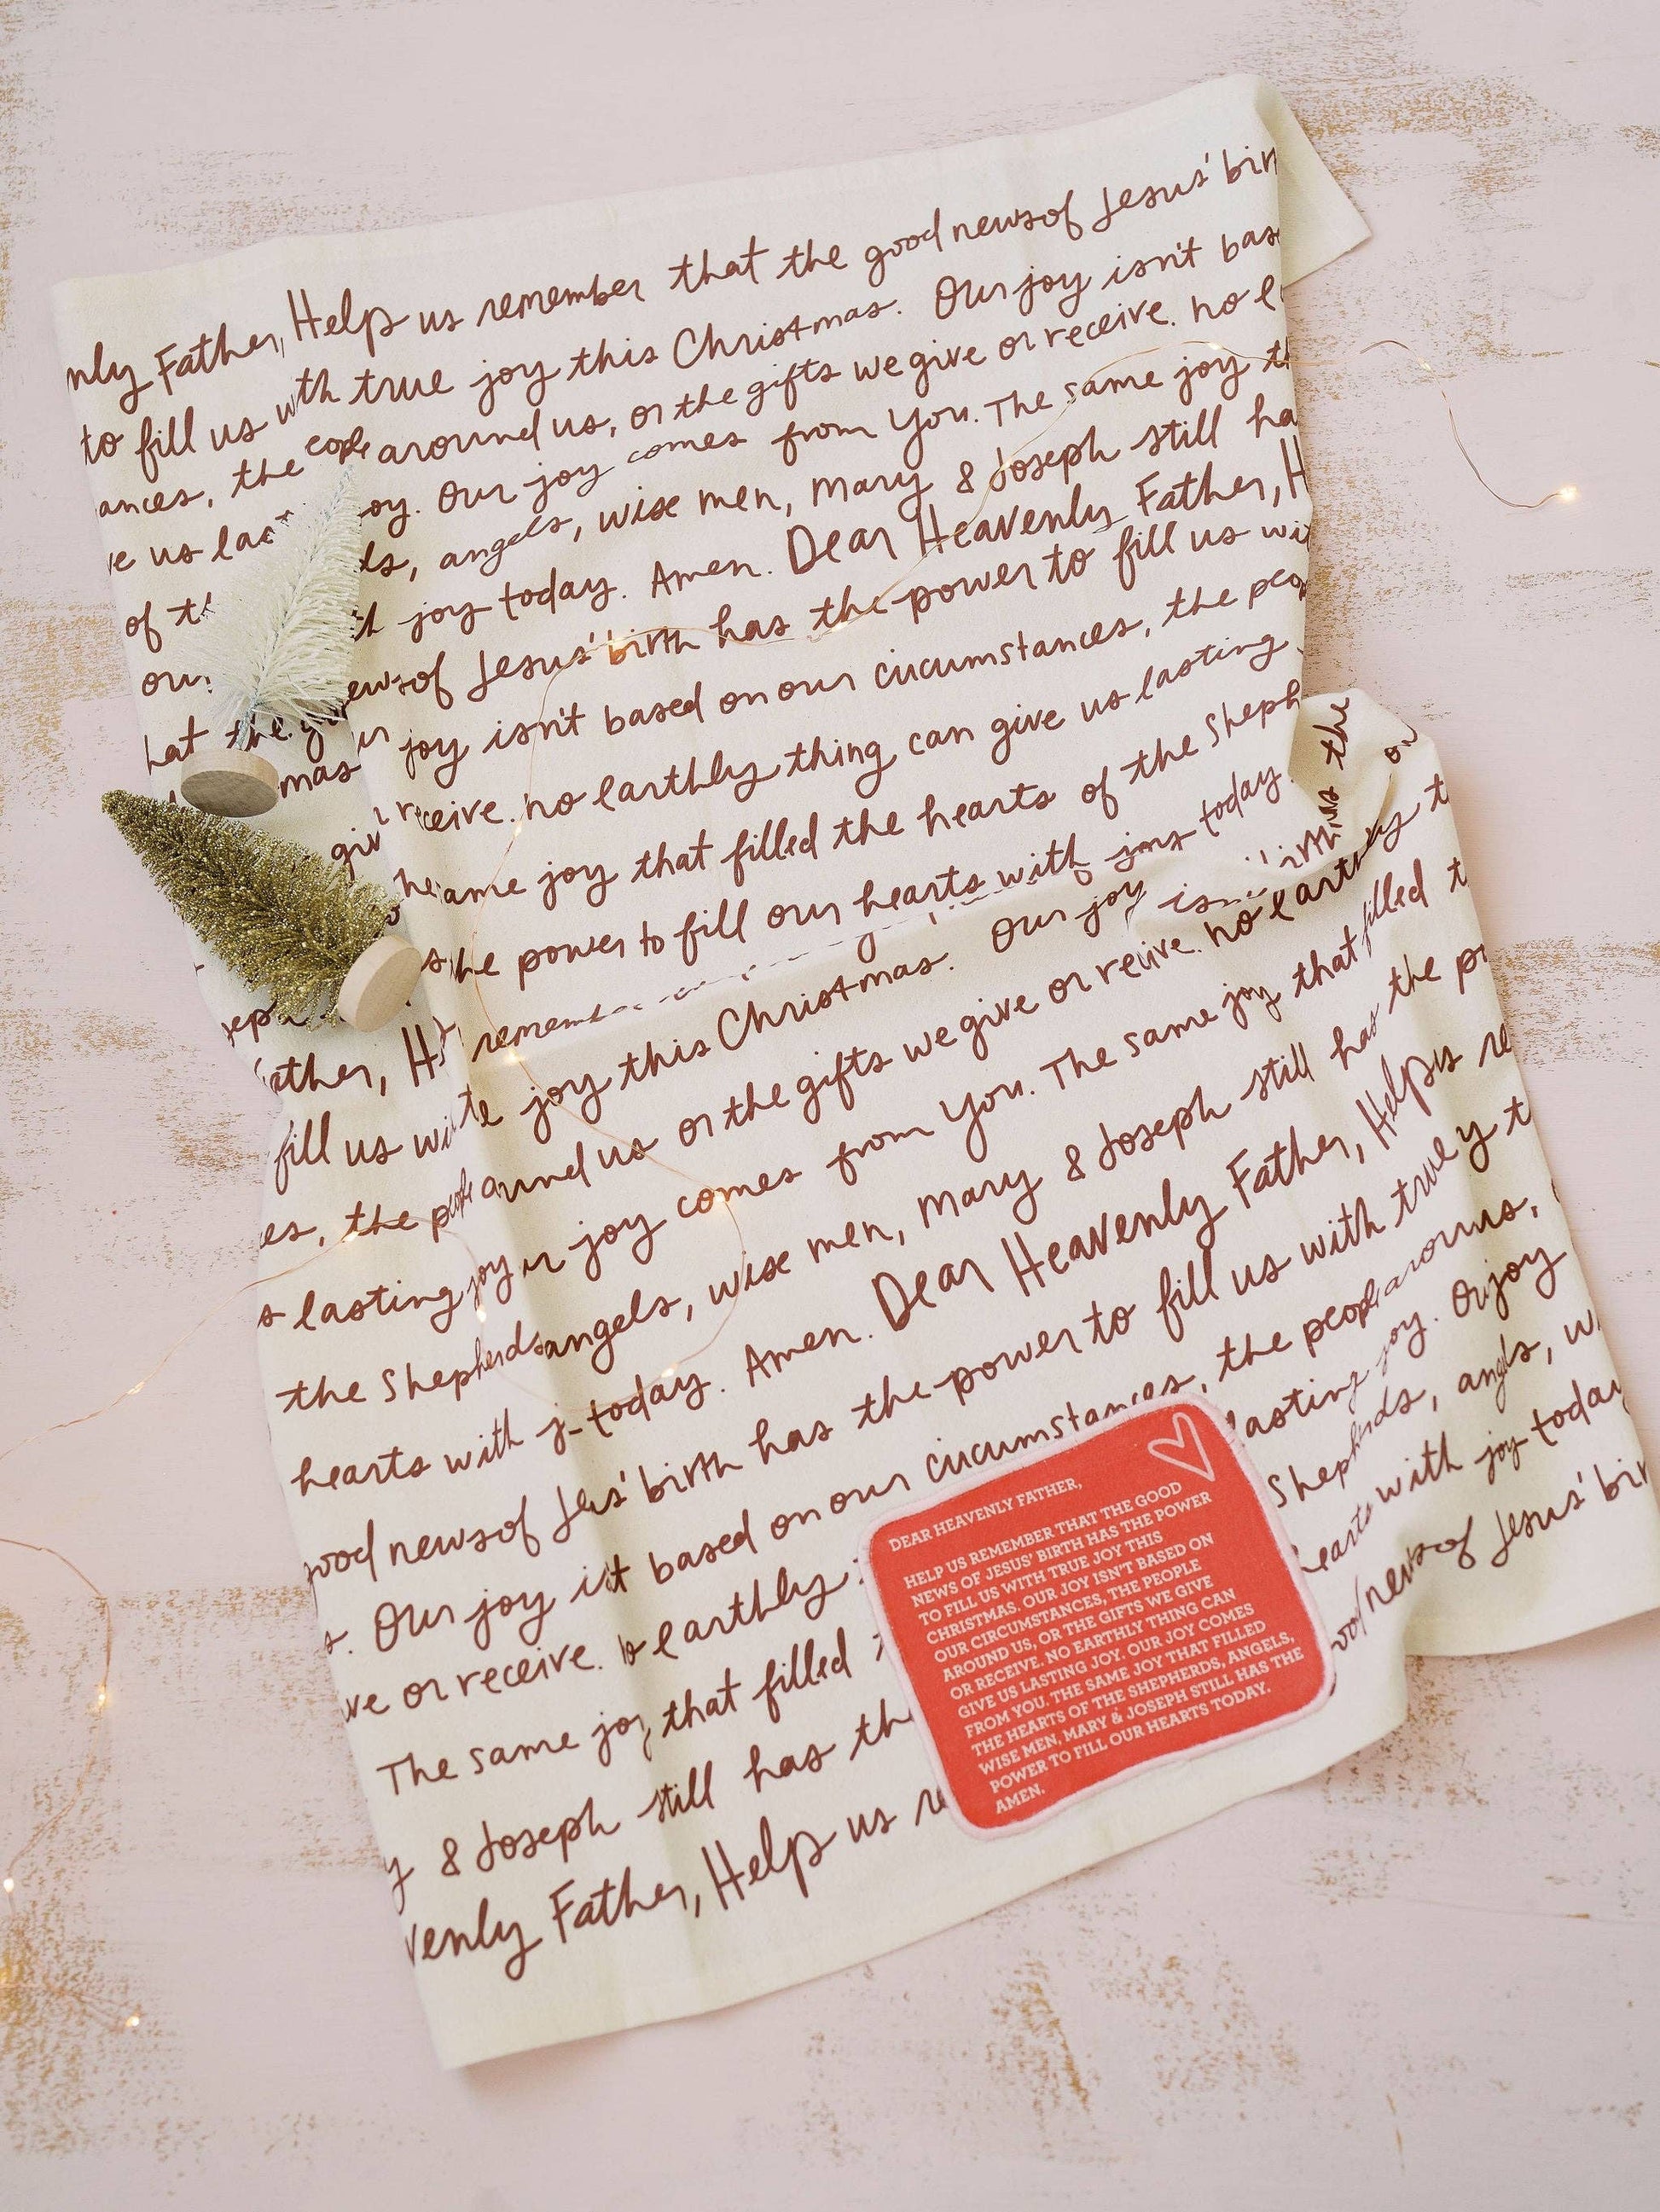 nly Father, Help us remember that the good news of Jesus' bir
to fill us with true joy this Christmas. Our joy isn't bas
ances, the around us, or the gifts we give or receive. No e
ve us las oy. Our joy comes from You. The same joy th
of t ds, angels, wise men, Mary & Joseph still ha
our joy today. Amen. Dear Heavenly Father, H
hat the news of Jesus' birth has the power to fill us wi
mas joy isn't based on our circumstances, the peo
giv receive. No earthly thing can give us lasting
same joy that filled the hearts of the Sheph
the power to fill our hearts with joy today.
eph
the
ather, H remem
fill us wi joy this Christmas. Our joy is birth
es, the people around us or the gifts we give or receive. No earthly t
s lasting joy joy comes from You. The same joy that filled t
the Shepherds angels, wise men, Mary & Joseph still has the p
hearts with j today. Amen. Dear Heavenly Father, Help us re
good news of Jesus' birth has the power to fill us with true y t
s. Our joy is t based on our circumstances, the people
ve or receive. No earthly lasting joy. Our joy
The same joy that filled Shepherds, angels, w
y & Joseph still has the hearts with joy today
venly Father, Help us re ood news of Jesus' bir
DEAR HEAVENLY FATHER,
HELP US REMEMBER THAT THE GOOD
NEWS OF JESUS' BIRTH HAS THE POWER
TO FILL US WITH TRUE JOY THIS
CHRISTMAS. OUR JOY ISN'T BASED ON
OUR CIRCUMSTANCES, THE PEOPLE
AROUND US, OR THE GIFTS WE GIVE
OR RECEIVE. NO EARTHLY THING CAN
GIVE US LASTING JOY. OUR JOY COMES
FROM YOU. THE SAME JOY THAT FILLED
THE HEARTS OF THE SHEPHERDS, ANGELS,
WISE MEN, MARY & JOSEPH STILL HAS THE
POWER TO FILL OUR HEARTS TODAY.
AMEN.